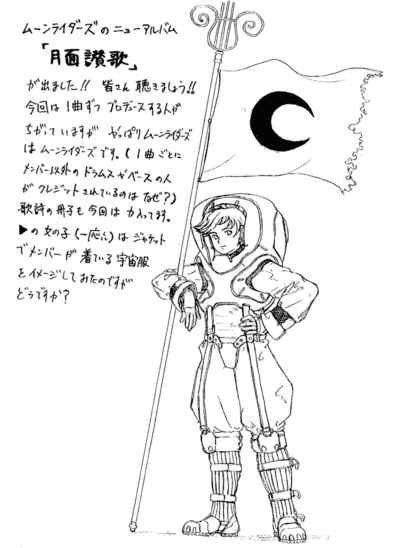 ムーンライダーズのニューアルバム
「月面讃歌」
が出ました!! 皆さん聴きましょう!!
今回は1曲ずつプロデュースする人が
ちがっていますが やっぱりムーンライダーズ
はムーンライダーズです。(1曲ごとに
メンバー以外のドラムスやベースの人
がクレジットされているのはなぜ?)
歌詩の冊子も今回は力入ってます。
▶の女の子(一応)はジャケット
でメンバーが着ている宇宙服
をイメージしてみたのですが
どうですか?